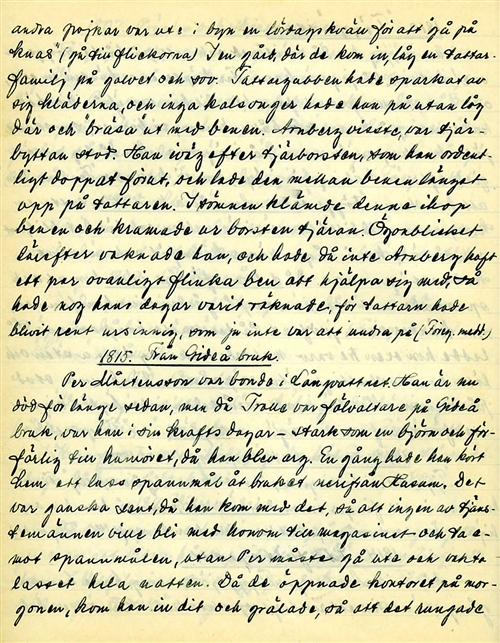 andra pojkar var ute i byn en lördagskväll för att "gå på
knas" (gå till flickorna) I en gård, där de kom in, låg en tattar-
familj på golvet och sov. Tattargubben hade sparkat av
sig kläderna, och inga kalsonger hade han på utan låg
där och "bräsa" ut med benen. Aronberg visste, var tjär-
byttan stod. Han iväg efter tjärborsten, som han ordent-
ligt doppat förut, och lade den mellan benen längst
upp på tattaren. I sömnen klämde denne ihop
benen och kramade ur borsten tjäran. Ögonblicket
därefter vaknade han, och hade då inte Aronberg haft
ett par ovanligt flinka ben att hjälpa sig med, så
hade nog hans dagar varit räknade, för tattarn hade
blivit rent ursinnig, som ju inte var att undra på (Föreg. medd.)
1815. Från Gideå bruk.
Per Mårtensson var bonde i Långvattnet. Han är nu
död för länge sedan, men då Tralle var förvaltare på Gideå
bruk, var han i sin krafts dagar – stark som en björn och för-
färlig till humöret, då han blev arg. En gång hade han kört
hem ett lass spannmål åt bruket nerifrån Husum. Det
var ganska sent, då han kom med det, så att ingen av tjäns-
temännen ville bli med honom till magasinet och ta e-
mot spannmålen, utan Per måste gå ute och vakta
lasset hela natten. Då de öppnade kontoret på mor-
gonen, kom han in dit och grälade, så att det rungade